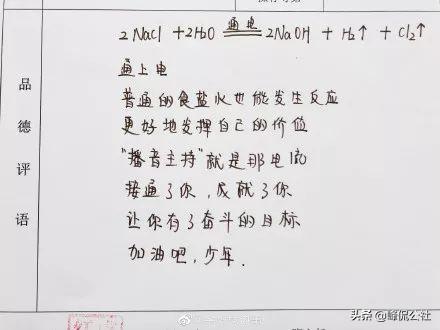 2NaCl + 2H₂O 通电 2NaOH + H₂↑ + Cl₂↑
通上电
普通的食盐水也能发生反应
更好地发挥自己的价值
“播音主持”就是那电流
接通了你,成就了你
让你有了奋斗的目标
加油吧,少年.
品德评语
头条@峰侃公社